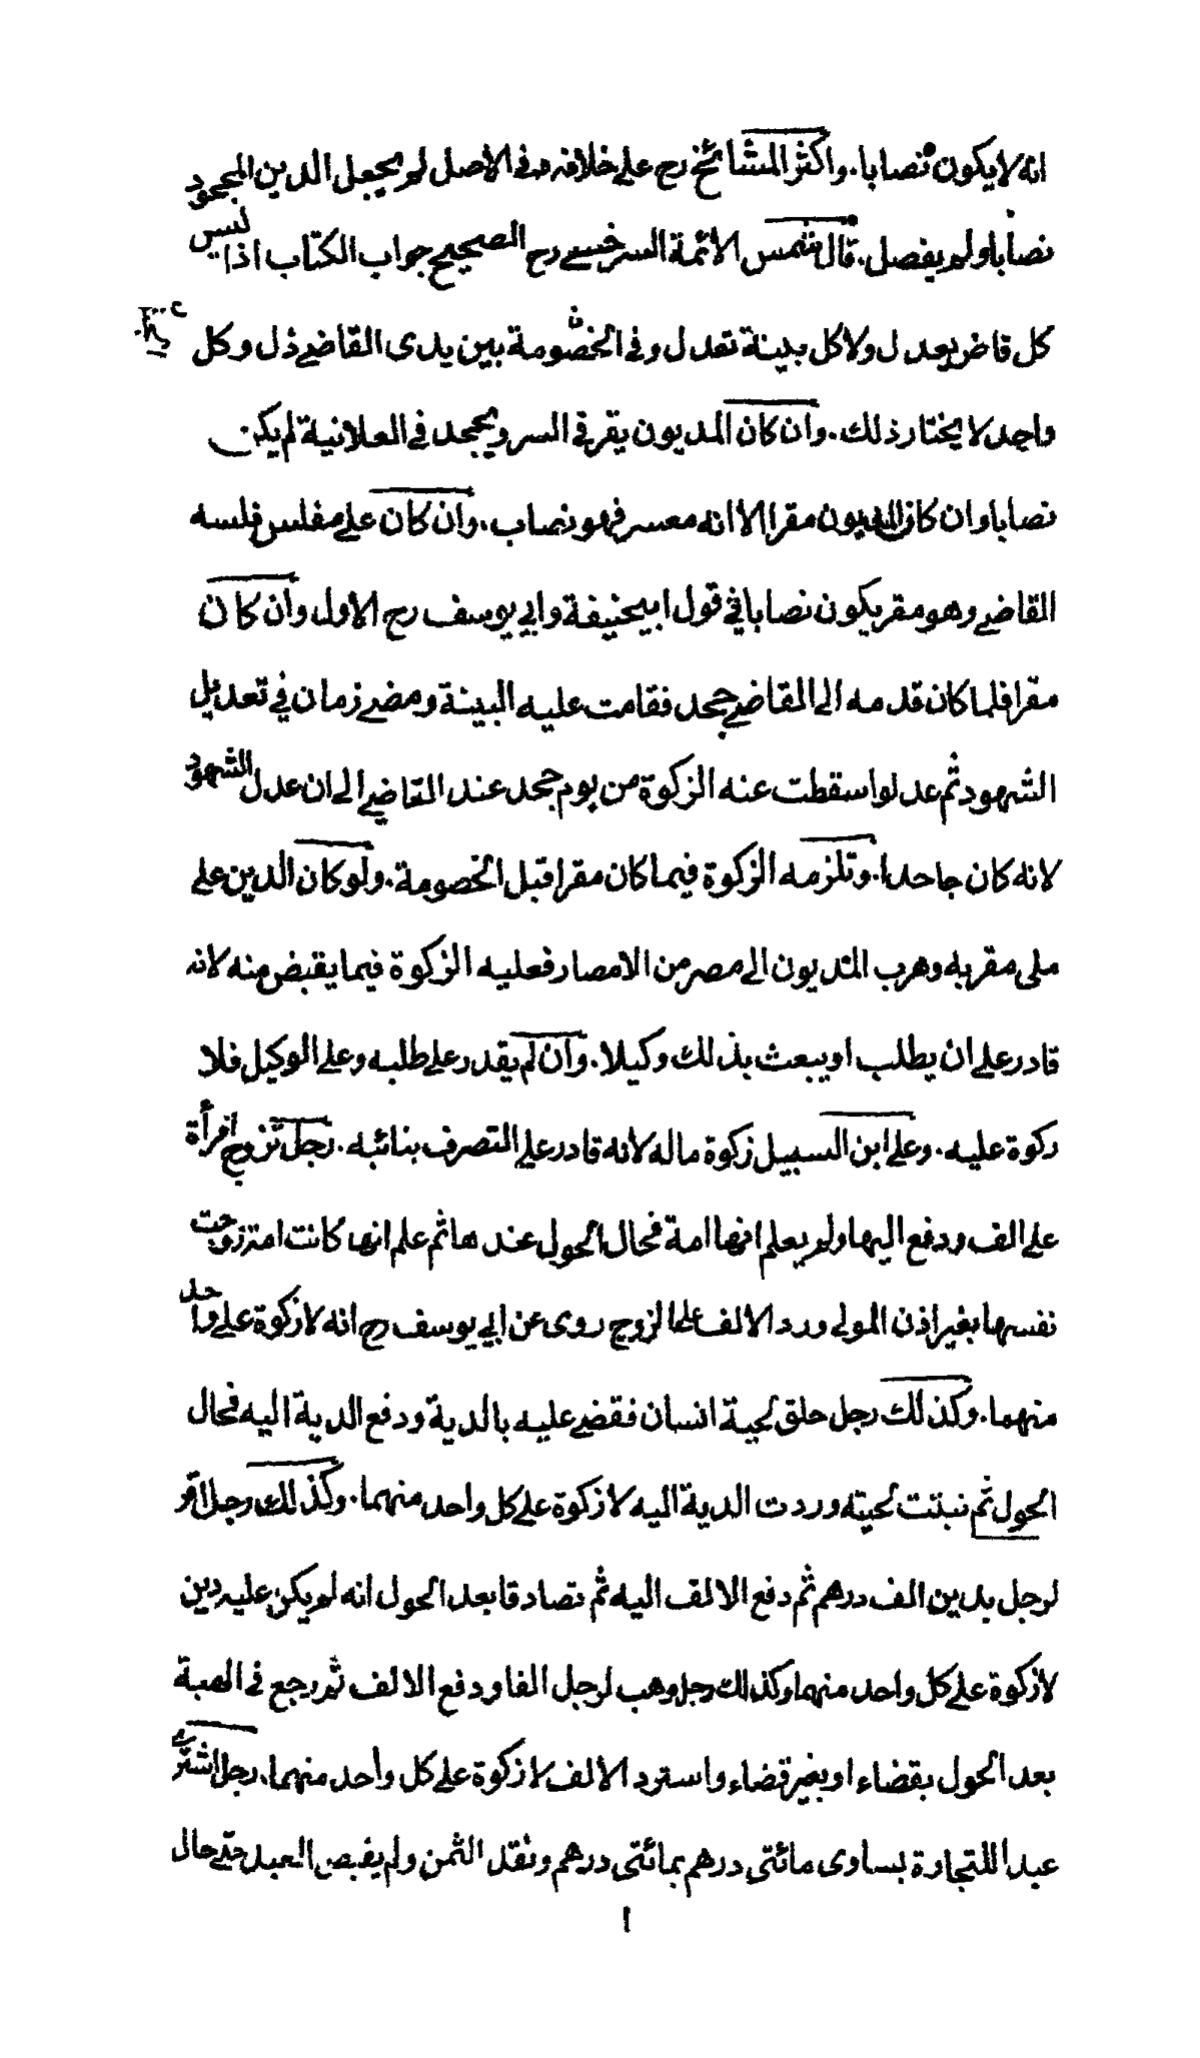 انه لا يكون نصابا. واكثر المشائخ رح على خلافه وفى الاصل لم يجعل الدين المجحود
نصابا ولم يفصل. قال شمس الائمة السرخسى رح الصحيح جواب الكتاب اذ ليس
كل قاض يعدل ولا كل بينة تعدل وفى الخصومة بين يدى القاضى ذل وكل
واحد لا يختار ذلك. وان كان المديون يقر فى السر ويجحد فى العلانية لم يكن
نصابا وان كان المديون مقرا الا انه معسر فهو نصاب. وان كان على مفلس فلسه
القاضى وهو مقر يكون نصابا فى قول ابيحنيفة وابى يوسف رح الاول وان كان
مقرا فلما كان قدمه الى القاضى جحد فقامت عليه البينة ومضى زمان فى تعديل
الشهود ثم عدلوا سقطت عنه الزكوة من يوم جحد عند القاضى الى ان عدل الشهود
لانه كان جاحدا. وتلزمه الزكوة فيما كان مقرا قبل الخصومة. ولو كان الدين على
ملى مقر به وهرب المديون الى مصر من الامصار فعليه الزكوة فيما يقبض منه لانه
قادر على ان يطلب او يبعث بذلك وكيلا. وان لم يقدر على طلبه وعلى الوكيل فلا
زكوة عليه. وعلى ابن السبيل زكوة ماله لانه قادر على التصرف بنائبه. رجل تزوج امرأة
على الف ودفع اليها ولم يعلم انها امة فحال الحول عندها ثم علم انها كانت امة زوجت
نفسها بغير اذن المولى ورد الالف على الزوج روى عن ابى يوسف رح انه لا زكوة على واحد
منهما. وكذلك رجل حلق لحية انسان فقضى عليه بالدية ودفع الدية اليه فحال
الحول ثم نبتت لحيته وردت الدية اليه لا زكوة على كل واحد منهما. وكذلك رجل اقر
لرجل بدين الف درهم ثم دفع الالف اليه ثم تصادقا بعد الحول انه لم يكن عليه دين
لا زكوة على كل واحد منهما وكذلك رجل وهب لرجل الفا ودفع الالف ثم رجع فى الهبة
بعد الحول بقضاء او بغير قضاء واسترد الالف لا زكوة على كل واحد منهما. رجل اشترى
عبدا للتجارة يساوى مائتى درهم بمائتى درهم ونقد الثمن ولم يقبض العبد حتى حال
ا